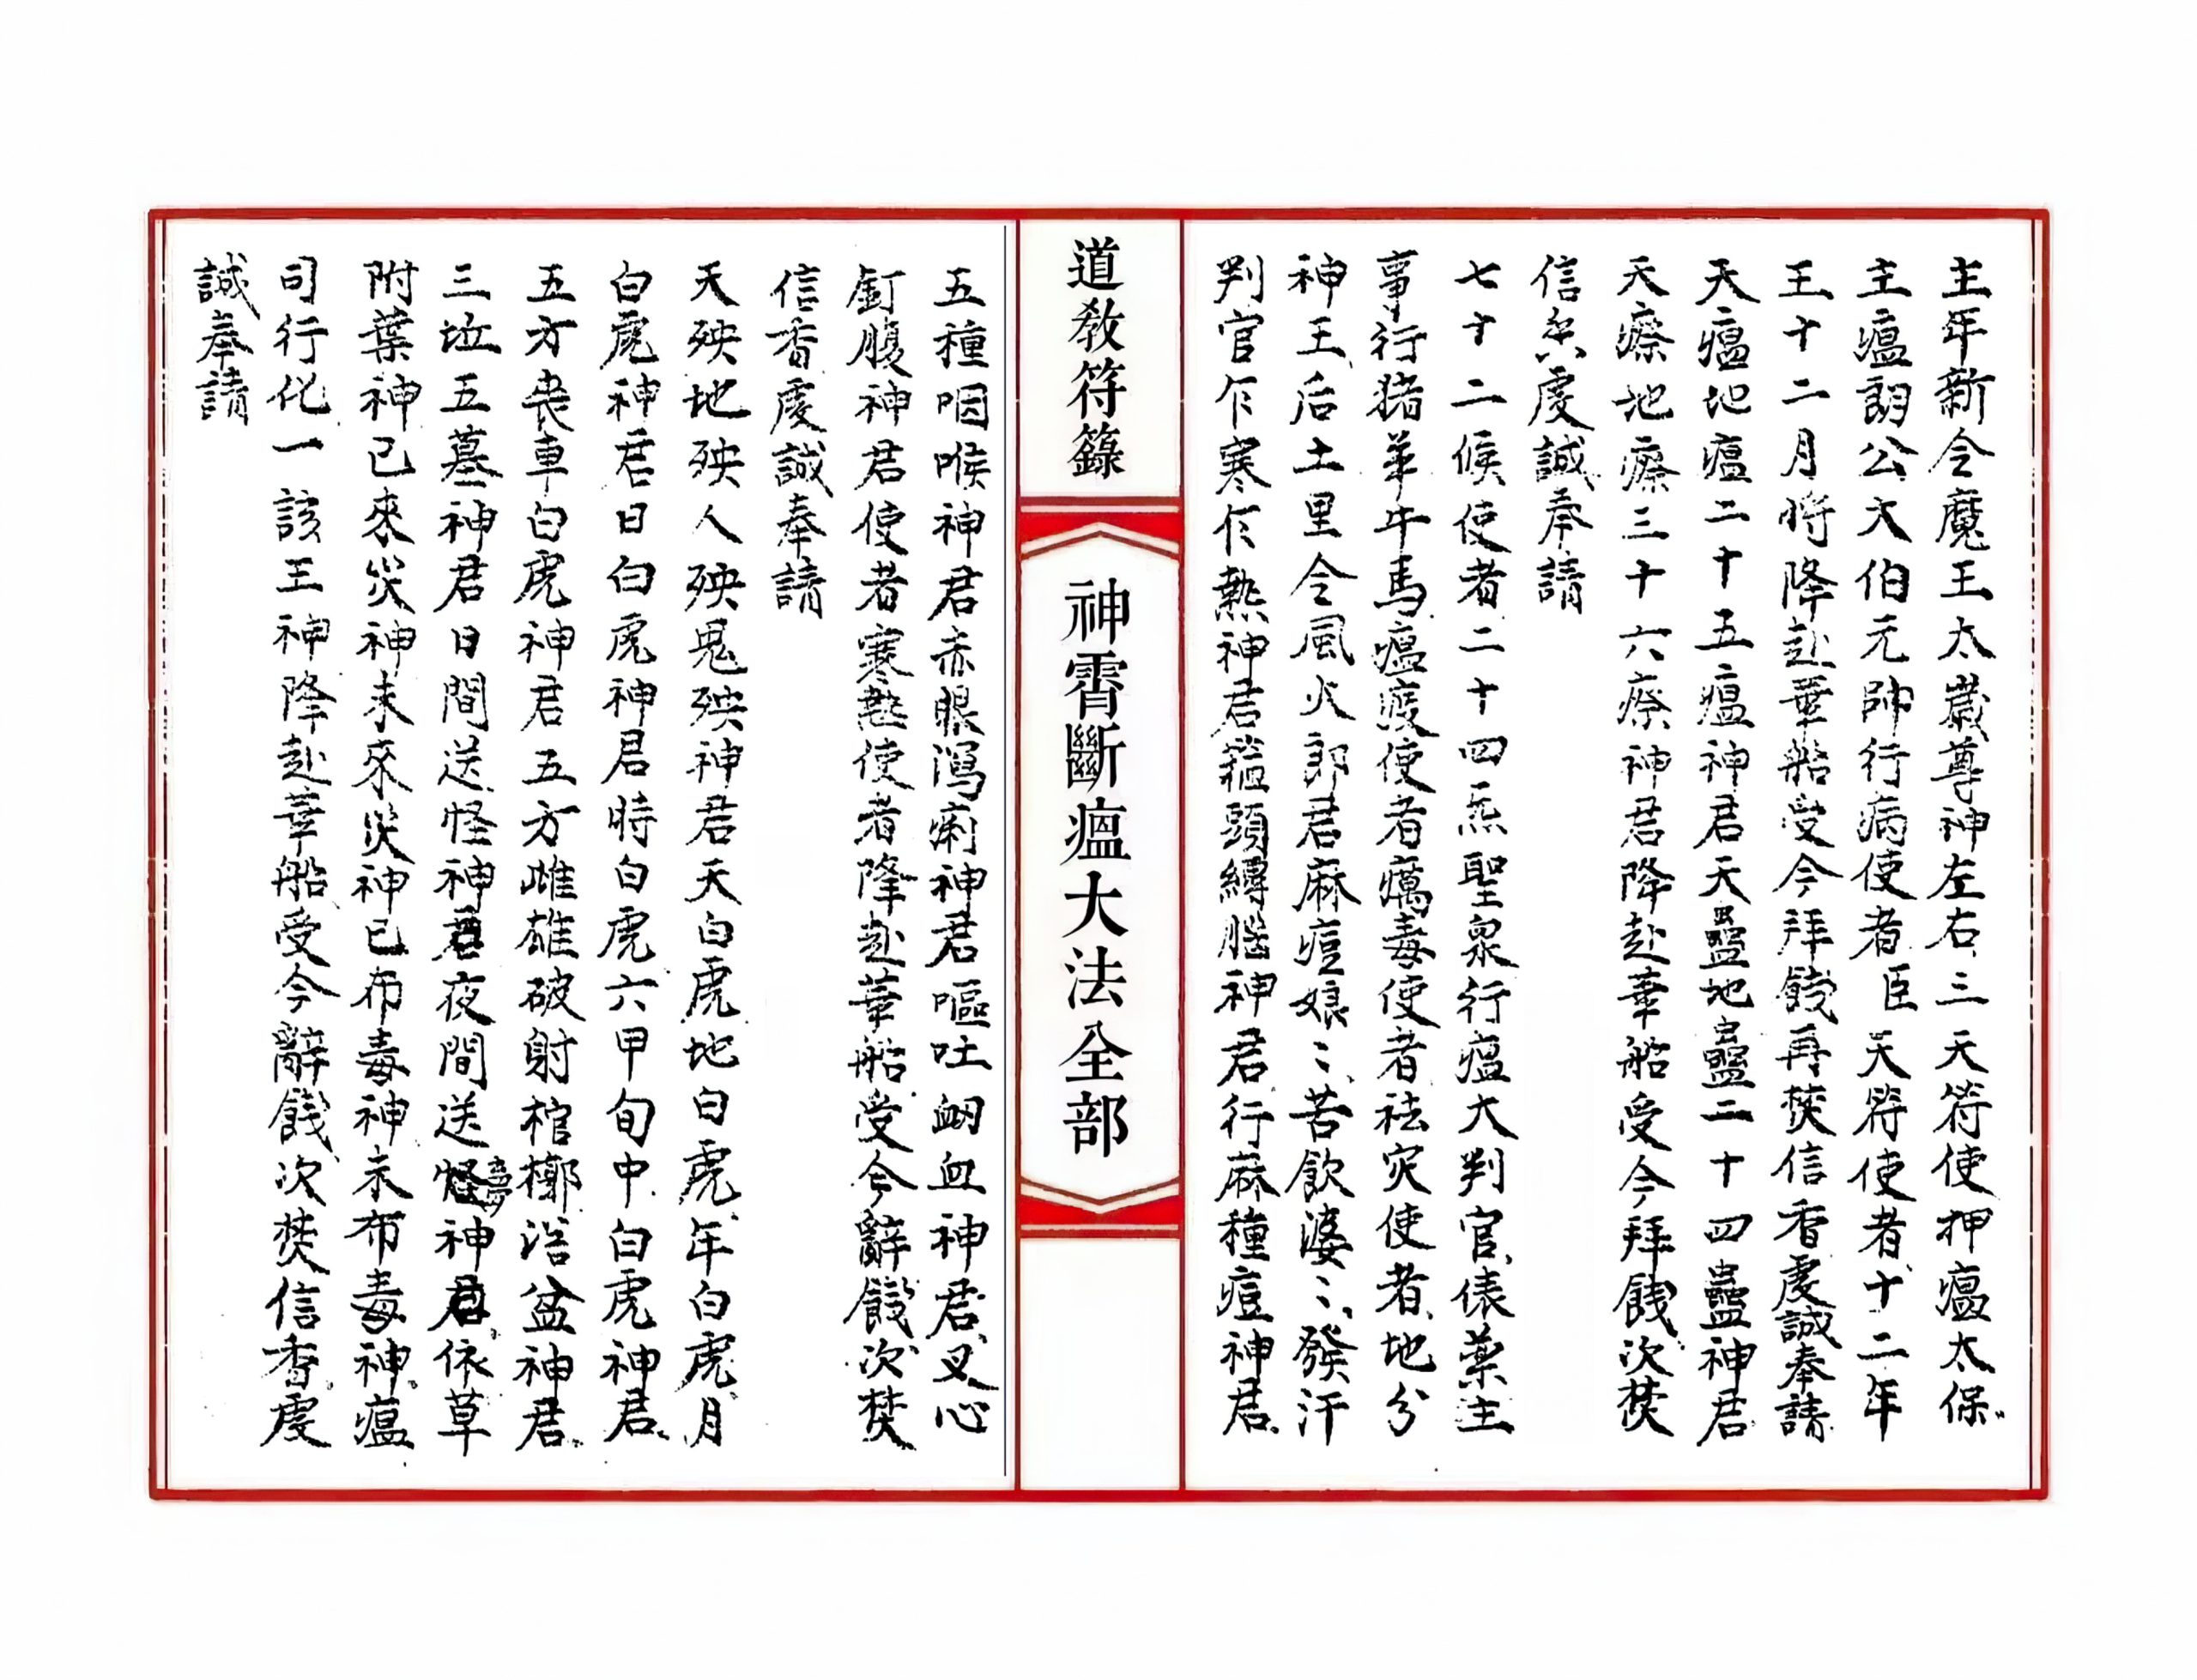 主年新令魔王太歲尊神左右三天符使押瘟太保
主瘟朗公大伯元帥行病使者臣天符使者十二年
王十二月將降赴華船受今拜餞再焚信香虔誠奉請
天瘟地瘟二十五瘟神君天蠱地蠱二十四蠱神君
天瘵地瘵三十六瘵神君降赴華船受今拜餞次焚
信香虔誠奉請
七十二候使者二十四炁聖衆行瘟大判官俵藥主
事行猪羊牛馬瘟疫使者癘毒使者祛灾使者地分
神王后土里令風火郎君麻痘娘〻苦飲婆〻發汗
判官乍寒乍熱神君箍頭縛腦神君行麻種痘神君
道教符籙
神霄斷瘟大法全部
五種咽喉神君赤眼瀉痢神君嘔吐衂血神君叉心
釘腹神君使者寒熱使者降赴華船受今辭餞次焚
信香虔誠奉請
天殃地殃人殃鬼殃神君天白虎地白虎年白虎月
白虎神君日白虎神君時白虎六甲旬中白虎神君
五方喪車白虎神君五方雌雄破射棺槨浴盆神君
三坵五墓神君日間送怪神君夜間送夢神君依草
附葉神已來災神未來災神已布毒神未布毒神瘟
司行化一該王神降赴華船受今辭餞次焚信香虔
誠奉請